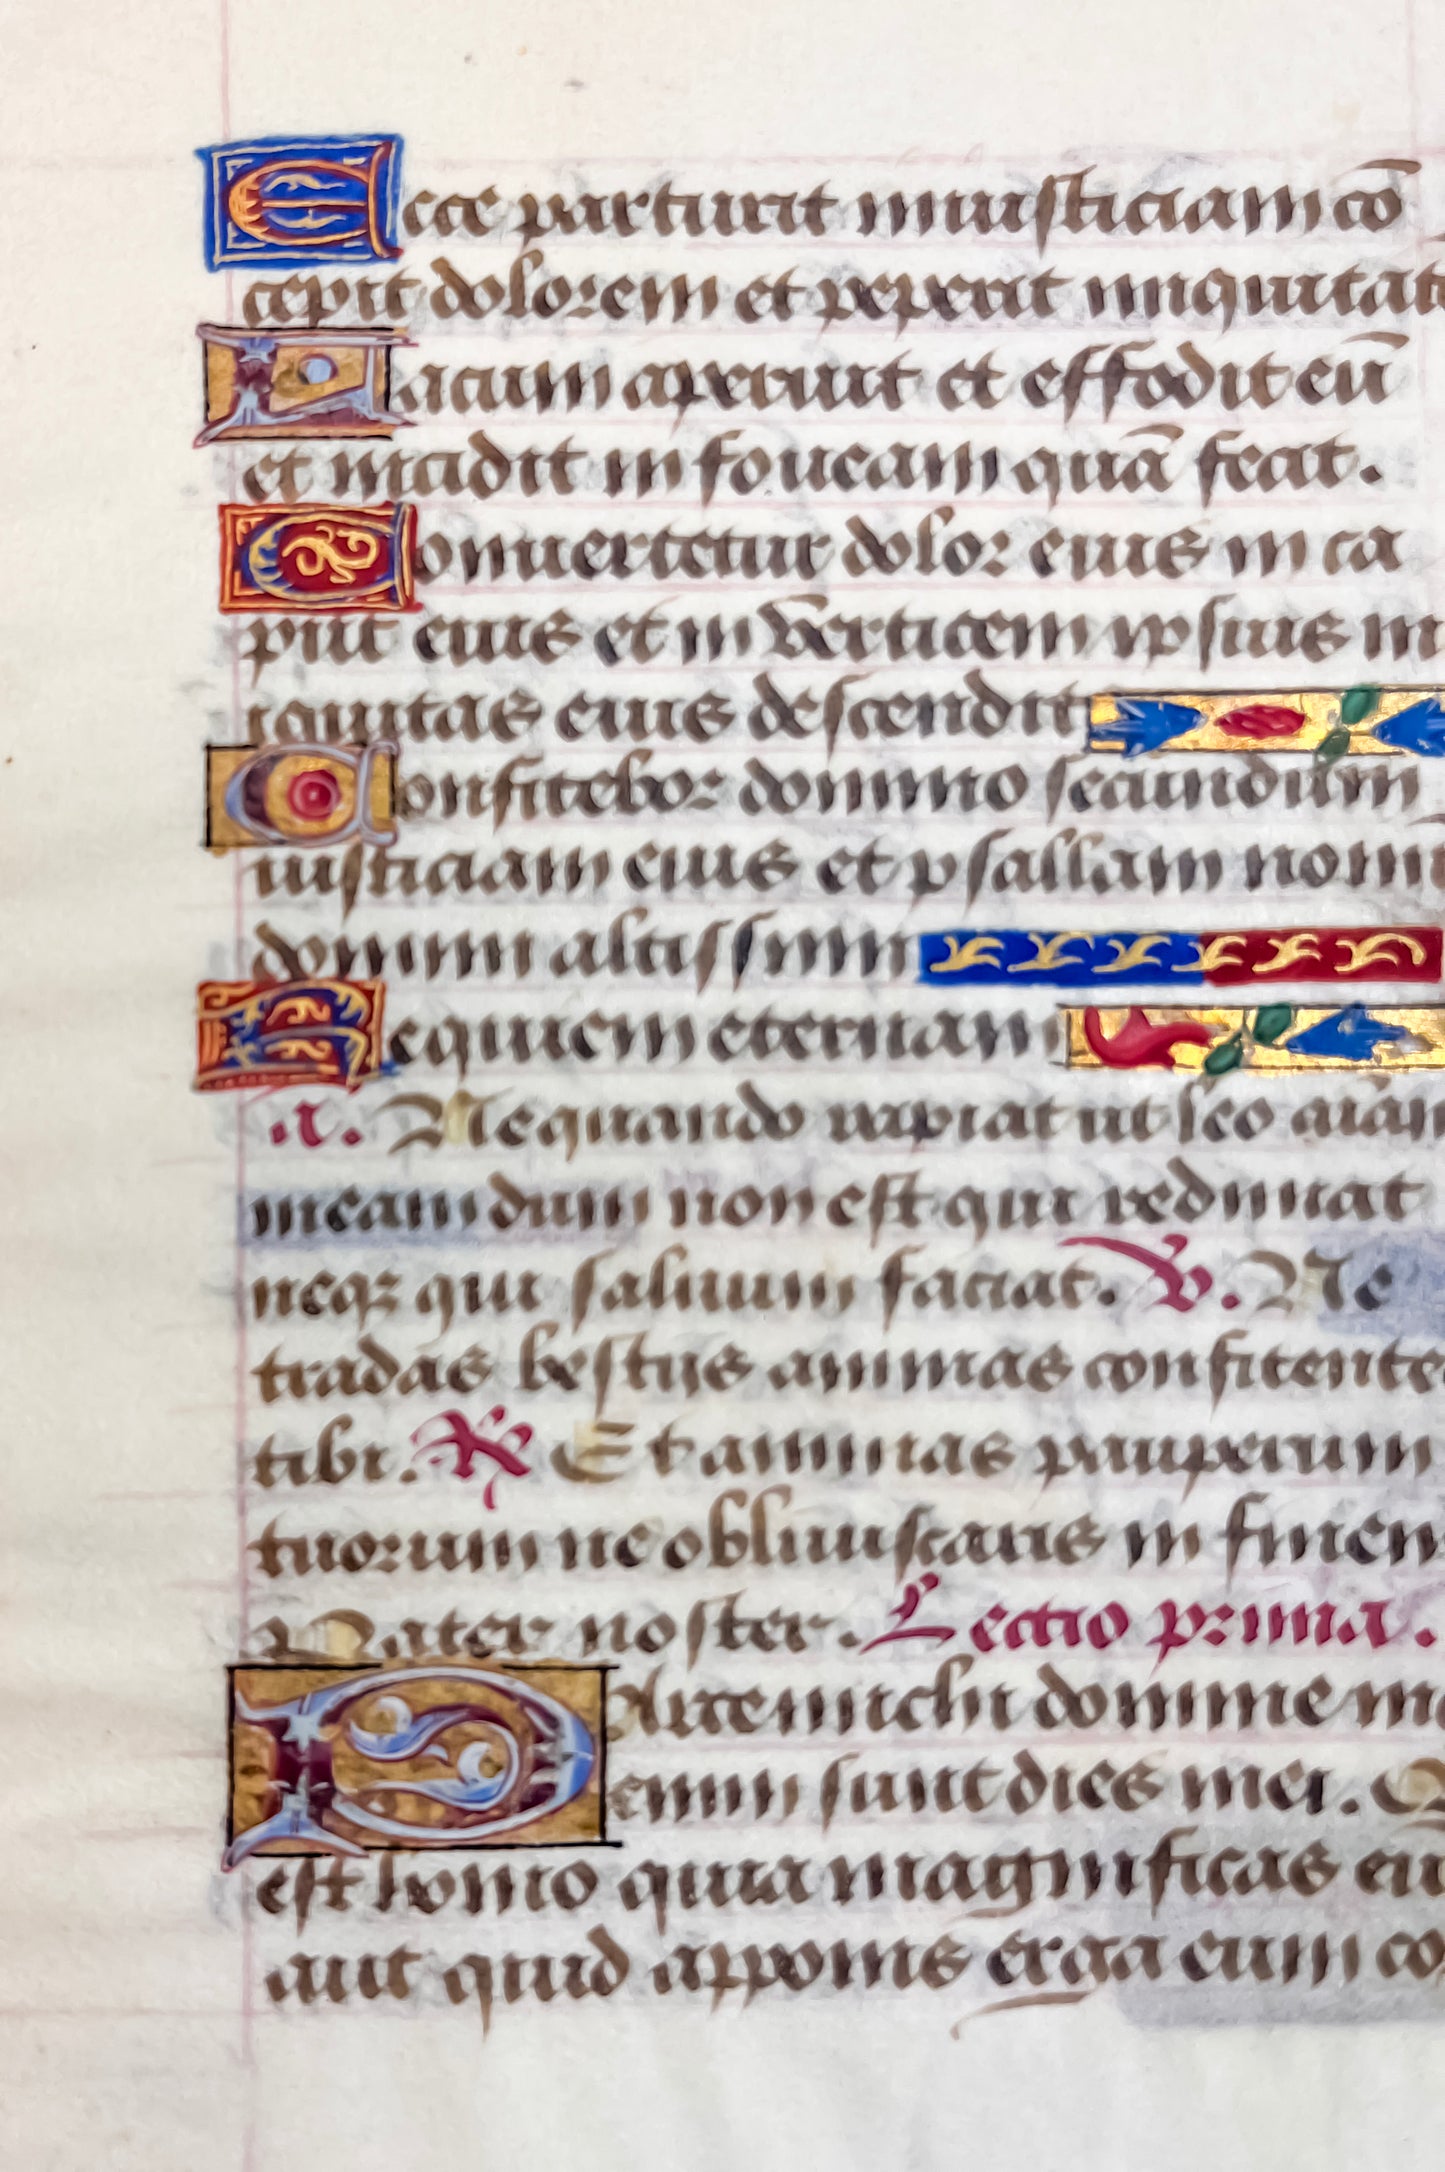 Ecce parturit iniusticiam cō
cepit dolorem et peperit iniquitate
Lacum aperuit et effodit eū
et incidit in foueam quā fecit.
Conuertetur dolor eius in ca
put eius et in verticem ipsius in
iquitas eius descendit
Confitebor domino secundum
iusticiam eius et psallam nomi
domini altissimi
Requiem eternam
a. Nequando rapiat ut leo aiām
meam dum non est qui redimat
neqꝫ qui saluum faciat. V. Ne
tradas bestiis animas confitente
tibi. R Et animas pauperum
tuorum ne obliuiscaris in finem
Pater noster. Lectio prima.
Parce michi domine
enim sunt dies mei. Q
est homo quia magnificas eū
aut quid apponis erga eum co